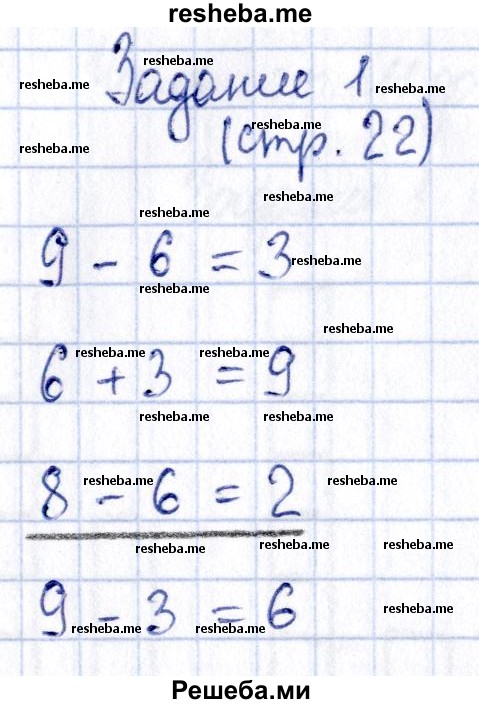 resheba.me
resheba.me
Задание 1
resheba.me
resheba.me
resheba.me
(стр. 22)
resheba.me
resheba.me
9 - 6 = 3
resheba.me
resheba.me
resheba.me
resheba.me
resheba.me
6 + 3 = 9
resheba.me
resheba.me
resheba.me
resheba.me
8 - 6 = 2
resheba.me
resheba.me
resheba.me
resheba.me
9 - 3 = 6
resheba.me
resheba.me
Решеба.ми